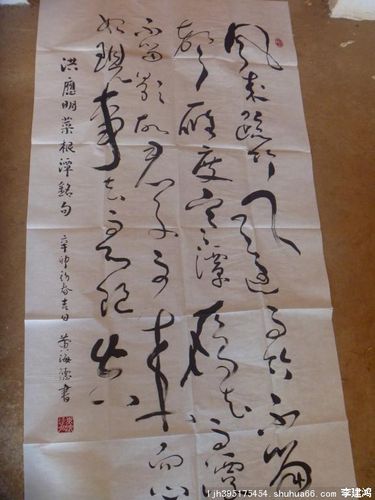 风来疏竹风过而竹不留
声雁度寒潭雁去而潭
不留影故君子事来而心
始現事去而心
洪應明菜根潭銘句
辛卯初春吉日 黄海德書
ljh395175454.shuhua66.com 李建鸿